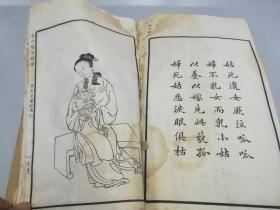 姑死遺女厥泣呱呱
婦不乳女而乳小姑
以養以嫁此藐孤
婦死姑悲淚眼俱枯